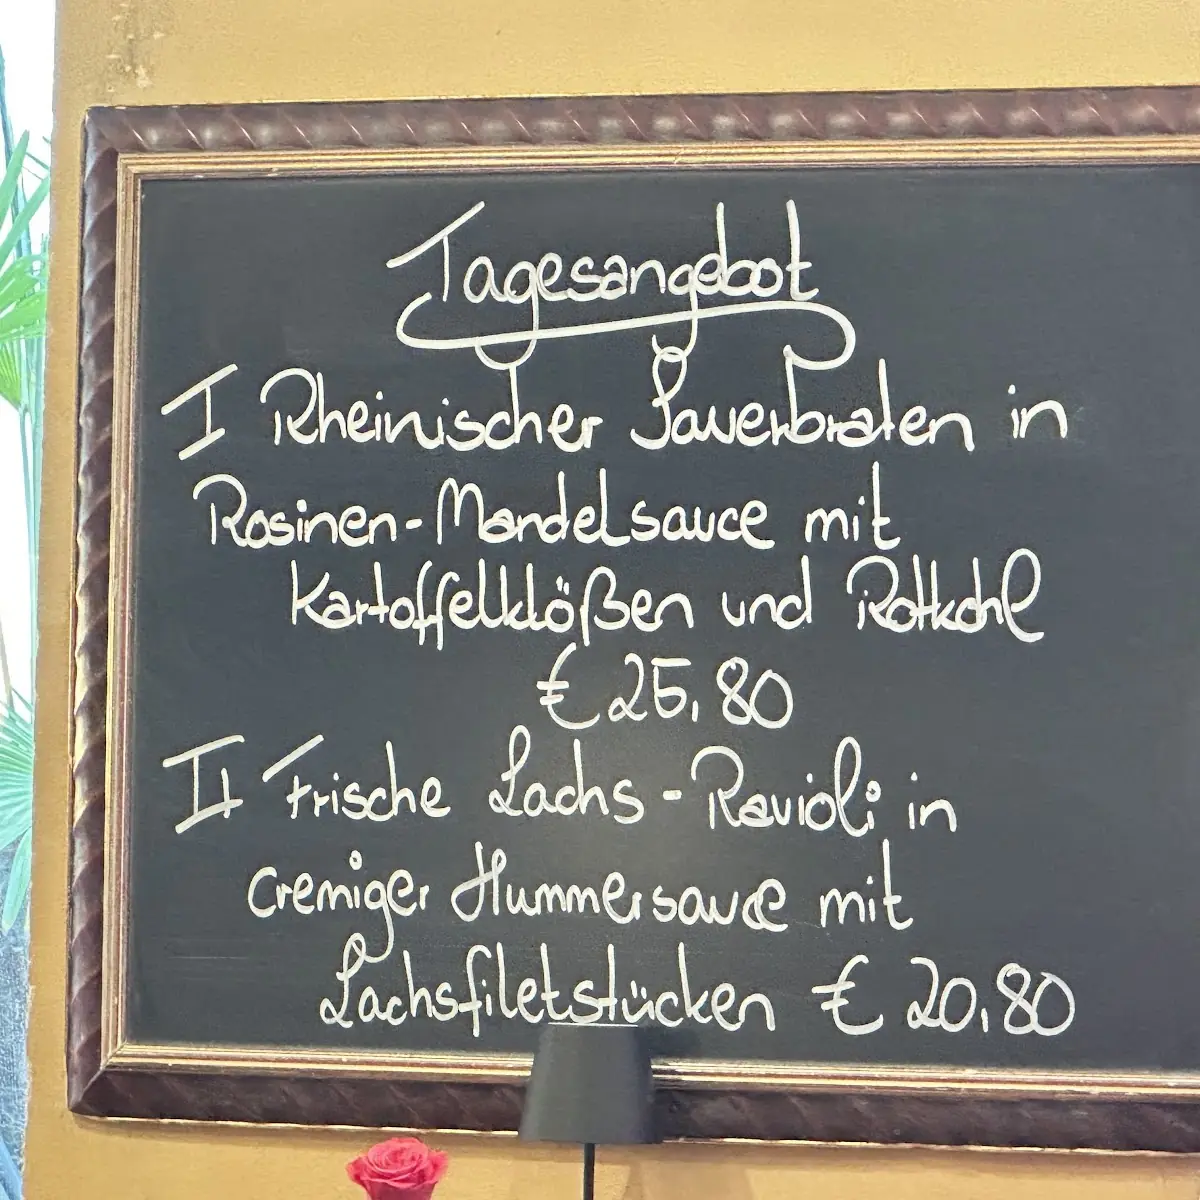 Tagesangebot
I Rheinischer Sauerbraten in
Rosinen-Mandelsauce mit
Kartoffelklößen und Rotkohl
€ 25,80
II Frische Lachs-Ravioli in
cremiger Hummersauce mit
Lachsfiletstücken € 20,80